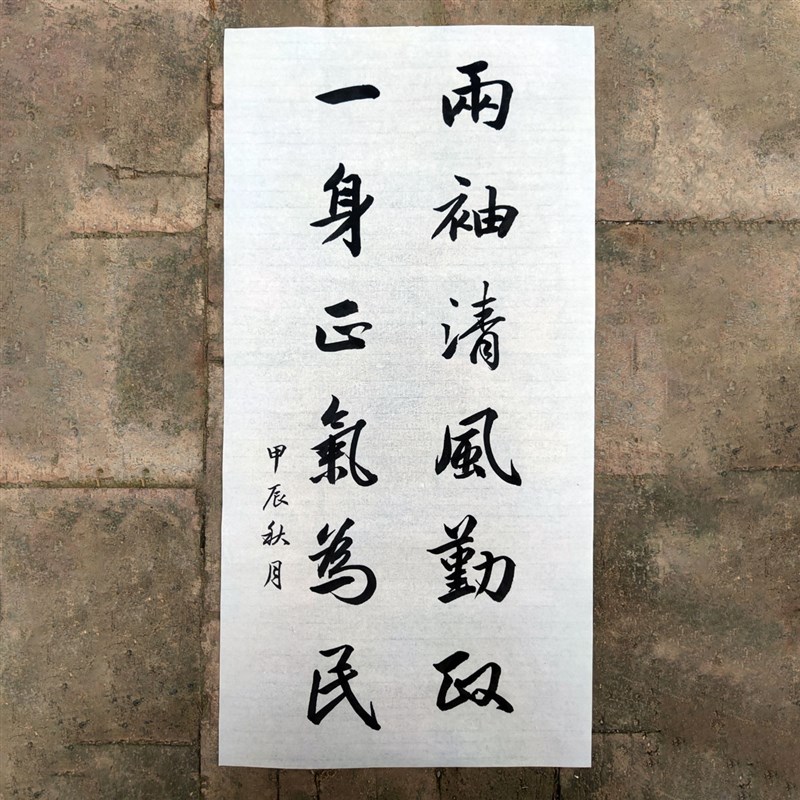 兩袖清風勤政
一身正氣為民
甲辰秋月